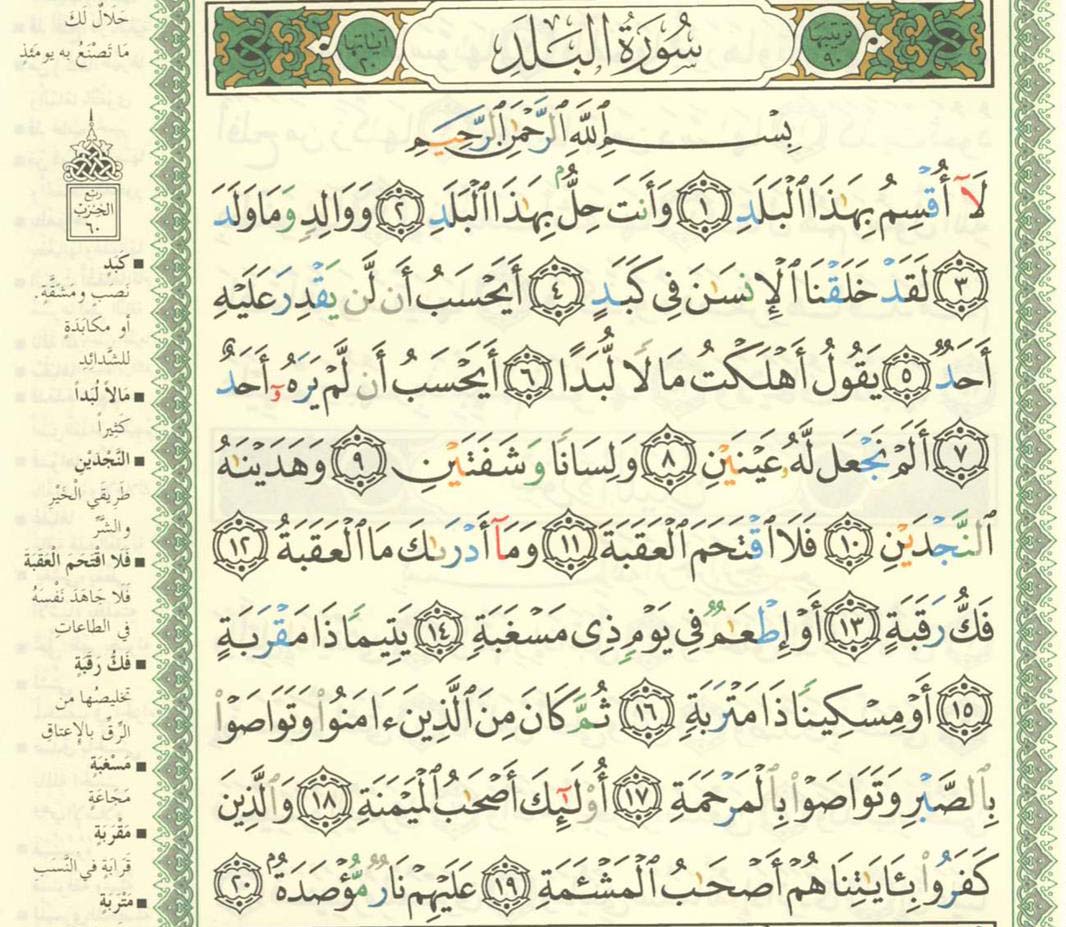 ترتيبها
٩٠
سُورَةُ البَلَدِ
آياتها
٢٠
بِسْمِ ٱللَّهِ ٱلرَّحْمَٰنِ ٱلرَّحِيمِ
لَآ أُقْسِمُ بِهَٰذَا ٱلْبَلَدِ ١ وَأَنتَ حِلٌّۢ بِهَٰذَا ٱلْبَلَدِ ٢ وَوَالِدٍ وَمَا وَلَدَ
٣ لَقَدْ خَلَقْنَا ٱلْإِنسَٰنَ فِى كَبَدٍ ٤ أَيَحْسَبُ أَن لَّن يَقْدِرَ عَلَيْهِ
أَحَدٌ ٥ يَقُولُ أَهْلَكْتُ مَالًا لُّبَدًا ٦ أَيَحْسَبُ أَن لَّمْ يَرَهُۥٓ أَحَدٌ
٧ أَلَمْ نَجْعَل لَّهُۥ عَيْنَيْنِ ٨ وَلِسَانًا وَشَفَتَيْنِ ٩ وَهَدَيْنَٰهُ
ٱلنَّجْدَيْنِ ١٠ فَلَا ٱقْتَحَمَ ٱلْعَقَبَةَ ١١ وَمَآ أَدْرَىٰكَ مَا ٱلْعَقَبَةُ ١٢
فَكُّ رَقَبَةٍ ١٣ أَوْ إِطْعَٰمٌ فِى يَوْمٍ ذِى مَسْغَبَةٍ ١٤ يَتِيمًا ذَا مَقْرَبَةٍ
١٥ أَوْ مِسْكِينًا ذَا مَتْرَبَةٍ ١٦ ثُمَّ كَانَ مِنَ ٱلَّذِينَ ءَامَنُوا۟ وَتَوَاصَوْا۟
بِٱلصَّبْرِ وَتَوَاصَوْا۟ بِٱلْمَرْحَمَةِ ١٧ أُو۟لَٰٓئِكَ أَصْحَٰبُ ٱلْمَيْمَنَةِ ١٨ وَٱلَّذِينَ
كَفَرُوا۟ بِـَٔايَٰتِنَا هُمْ أَصْحَٰبُ ٱلْمَشْـَٔمَةِ ١٩ عَلَيْهِمْ نَارٌ مُّؤْصَدَةٌۢ ٢٠
حَلَالٌ لَكَ
مَا تَصْنَعُ به يومئِذٍ
ربع
الحِزب
٦٠
■ كَبَدٍ
نَصَبٍ ومَشَقَّة.
أو مكابَدَة
للشَّدائد
■ مَالاً لُبَداً
كَثِيرا
■ النَّجْدَيْن
طريقي الْخَيْرِ
والشَّرِّ
■ فَلَا اقْتَحَمَ الْعَقَبَةَ
فَلا جَاهَدَ نَفْسَهُ
في الطاعاتِ
■ فَكُّ رَقَبَةٍ
تخليصُها من
الرِّقِّ بالإعتاقِ
■ مَسْغَبَة
مَجَاعَةٍ
■ مَقْرَبَةٍ
قَرابةٍ في النَّسَبِ
■ مَتْرَبَةٍ